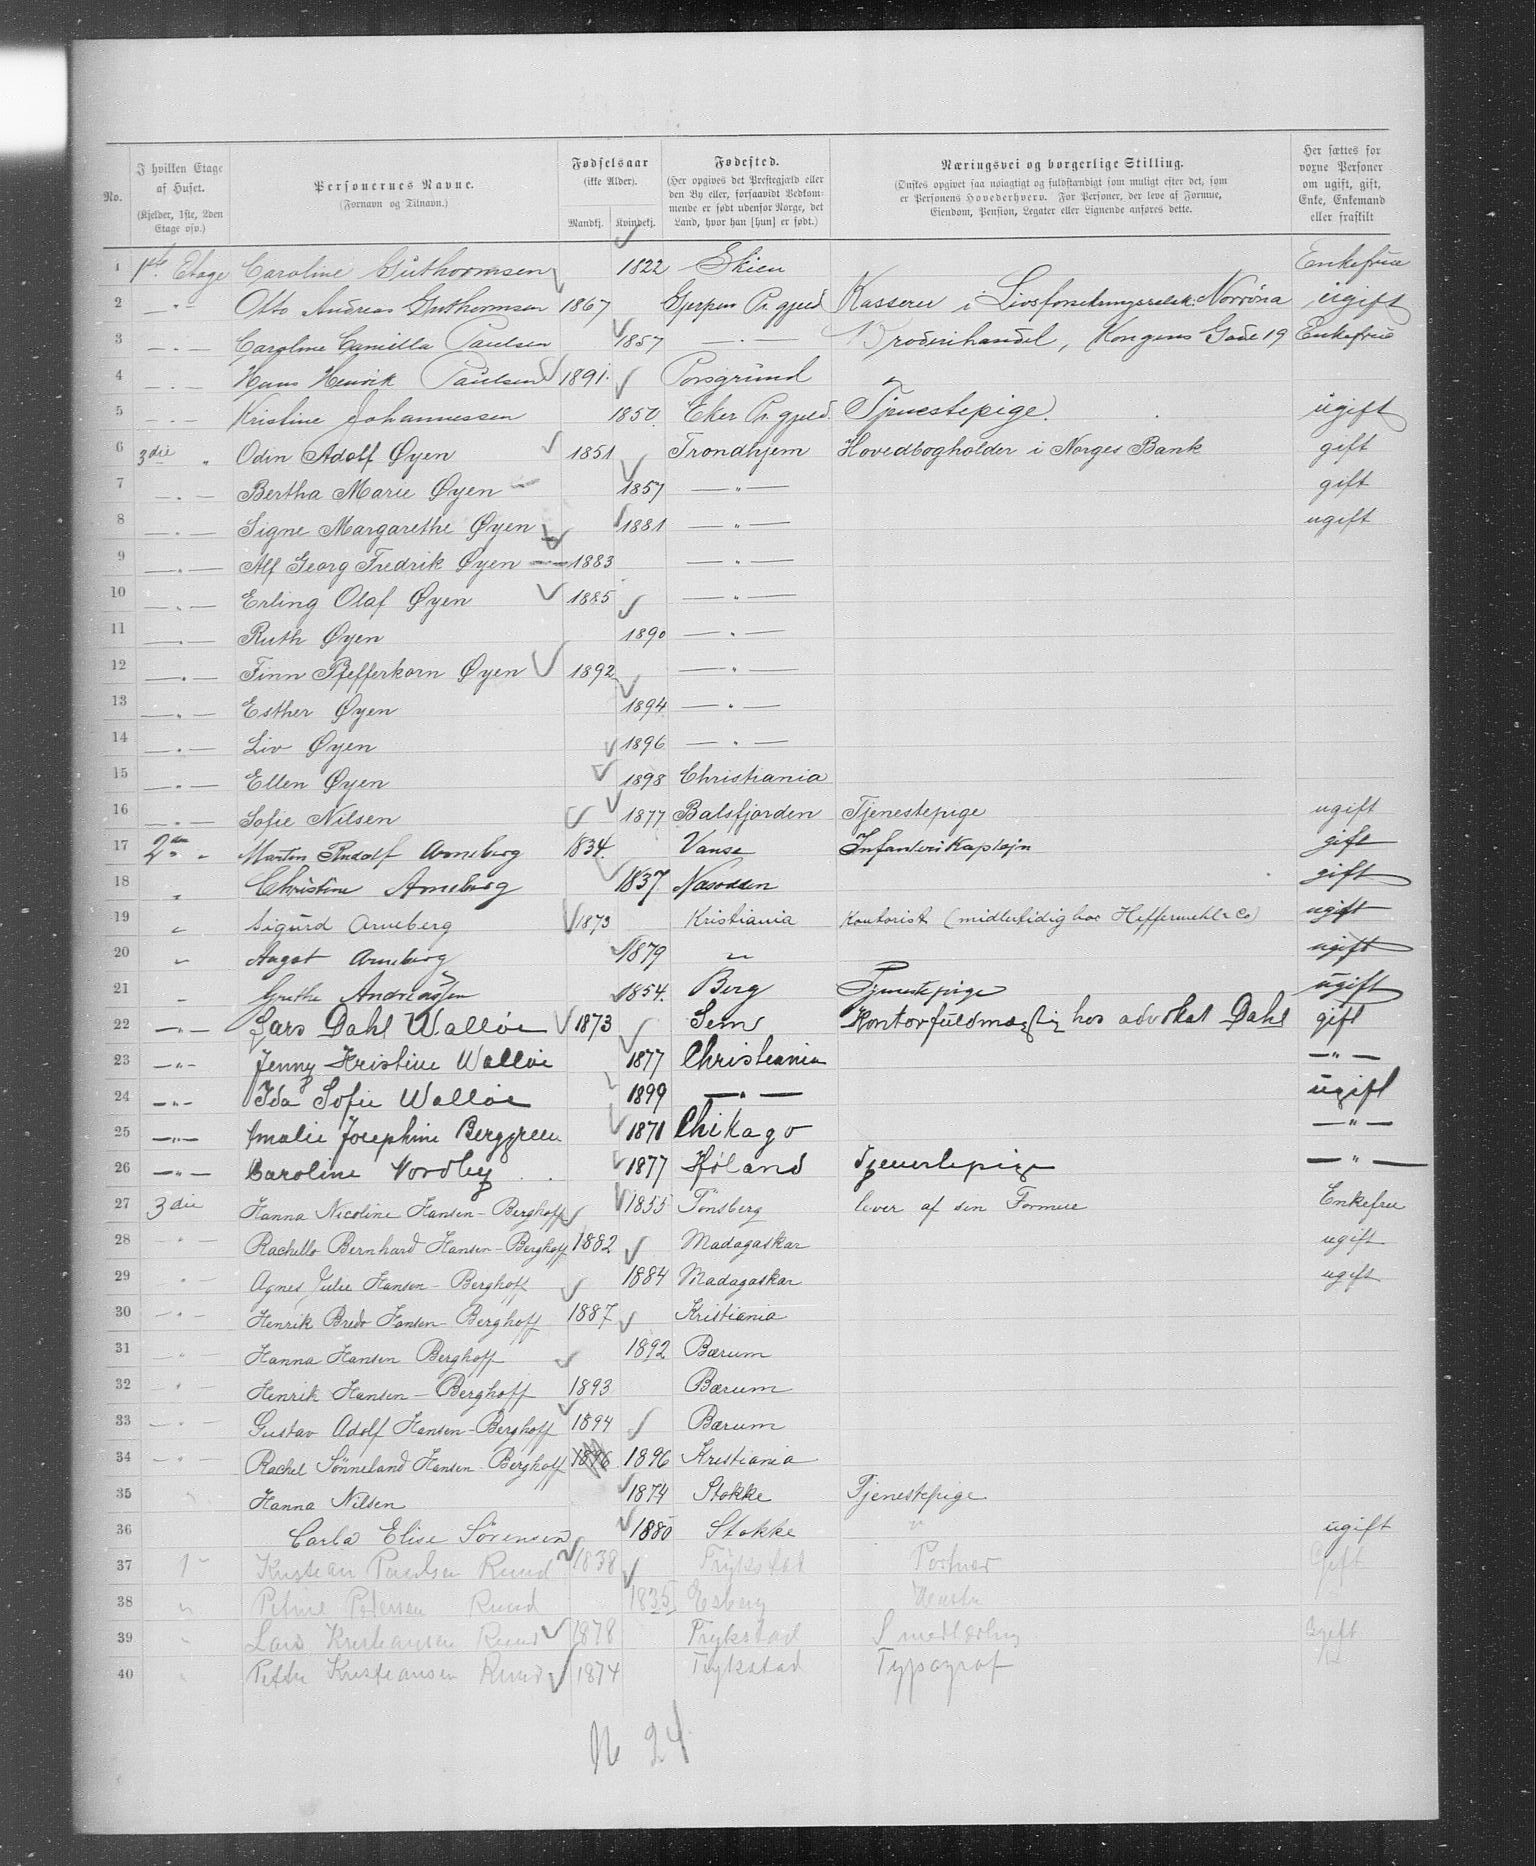 No.
I hvilken Etage af Huset. (Kjelder, 1ste, 2den Etage osv.)
Personernes Navne. (Fornavn og Tilnavn.)
Fødselsaar (ikke Alder). Mandkj. Kvindekj.
Fødested. (Her opgives det Præstegjæld eller den By eller, forsaavidt Vedkommende er født udenfor Norge, det Land, hvor han [hun] er født.)
Næringsvei og borgerlige Stilling. (Ønskes opgivet saa nøiagtigt og fuldstændigt som muligt efter det, som er Personens Hovederhverv. For Personer, der leve af Formue, Eiendom, Pension, Legater eller Lignende anføres dette.)
Her sættes for voxne Personer om ugift, gift, Enke, Enkemand eller fraskilt
1 1ste Etage Caroline Guthormsen 1822 Skien Enkefrue
2 - " - Otto Andreas Guthormsen 1867 Gjerpen Pr. gjeld Kasserer i Livsforsikringsselsk. Norröna ugift
3 - " - Caroline Camilla Paulsen 1857 - " - Broderihandel, Kongens Gade 19 Enkefrue
4 - " - Hans Henrik Paulsen 1891. Porsgrund
5 - " - Kristine Johannessen 1850. Eker Pr. gjeld. Tjenestepige. ugift
6 3die " Odin Adolf Øyen 1851 Trondhjem Hovedbogholder i Norges Bank gift
7 - " - Bertha Marie Øyen 1857 - " - gift
8 - " - Signe Margarethe Øyen 1881 - " - ugift
9 - " - Alf Georg Fredrik Øyen 1883 - " -
10 - " - Erling Olaf Øyen 1885 - " -
11 - " - Ruth Øyen 1890 - " -
12 - " - Finn Pfefferkorn Øyen 1892 - " -
13 - " - Esther Øyen 1894 - " -
14 - " - Liv Øyen 1896 - " -
15 - " - Ellen Øyen 1898 Christiania
16 - " - Sofie Nilsen 1877 Balsfjorden Tjenestepige ugift
17 2den " Marten Rudolf Arneberg 1834. Vanse Infanterikaptejn gift
18 " Christine Arneberg 1837 Næsodden gift
19 " Sigurd Arneberg 1873 Kristiania Kontorist (midlertidig hos Heffermehl & Co) ugift
20 " Aagot Arneberg 1879 " ugift
21 " Grethe Andreassen 1854. Berg Tjenestepige ugift
22 - " - Lars Dahl Walløe 1873 Sem Kontorfuldmægtig hos advokat Dahl gift
23 - " - Jenny Kristine Walløe 1877 Christiania - " -
24 - " - Ida Sofie Walløe 1899 - " - ugift
25 - " - Amalie Josephine Berggreen 1871 Chikago - " -
26 - " - Caroline Nordby 1877 Høland Tjenestepige - " -
27 3die Hanna Nicoline Hansen-Berghoff 1855 Tönsberg lever af sin Formue Enkefrue
28 - " - Rachello Bernhard Hansen-Berghoff 1882 Madagaskar ugift
29 - " - Agnes Julie Hansen-Berghoff 1884 Madagaskar ugift
30 - " - Henrik Bredo Hansen-Berghoff 1887 Kristiania
31 - " - Hanna Hansen Berghoff 1892 Bærum
32 - " - Henrik Hansen-Berghoff 1893 Bærum
33 - " - Gustav Adolf Hansen-Berghoff 1894 Bærum
34 - " - Rachel Sönneland Hansen-Berghoff 1896 1896 Kristiania
35 " Hanna Nilsen 1874 Stokke Tjenestepige
36 Carla Elise Sörensen 1880 Stokke " ugift
37 1 " Kristian Paulsen Ruud 1838 Trykstad Portner Gift
38 " Petersen Ruud 1835 -
39 " Lars Kristiansen Ruud 1878 Trykstad Smedlærling Ugift
40 " Peder Kristiansen Ruud 1874 Trykstad Typograf
No 24